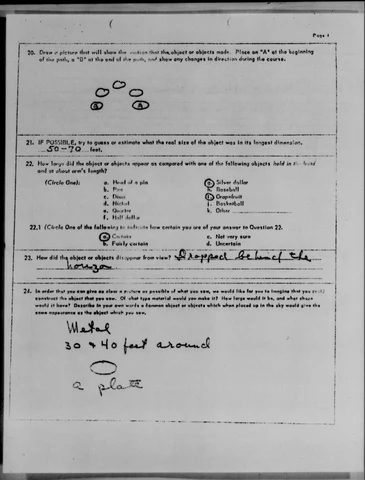 Page 4
20. Draw a picture that will show the motion that the object or objects made. Place an "A" at the beginning
of the path, a "B" at the end of the path, and show any changes in direction during the course.
A B
21. IF POSSIBLE, try to guess or estimate what the real size of the object was in its longest dimension.
50-70 feet.
22. How large did the object or objects appear as compared with one of the following objects held in the hand
and at about arm's length?
(Circle One): a. Head of a pin g. Silver dollar
b. Pea h. Baseball
c. Dime i. Grapefruit
d. Nickel j. Basketball
e. Quarter k. Other
f. Half dollar
22.1 (Circle One of the following to indicate how certain you are of your answer to Question 22.
a. Certain c. Not very sure
b. Fairly certain d. Uncertain
23. How did the object or objects disappear from view? Dropped behind the
horizon
24. In order that you can give as clear a picture as possible of what you saw, we would like for you to imagine that you could
construct the object that you saw. Of what type material would you make it? How large would it be, and what shape
would it have? Describe in your own words a common object or objects which when placed up in the sky would give the
same appearance as the object which you saw.
Metal
30 + 40 feet around
a plate